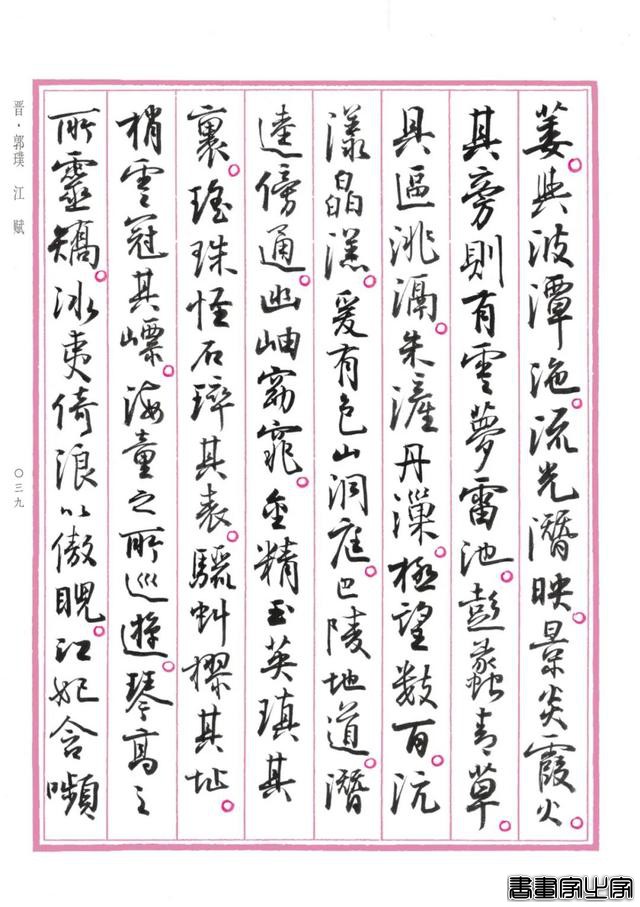 晋·郭璞 江赋
〇三九
萎。與波潭沲。流光潛映。景炎霞火。
其旁則有雲夢雷池。彭蠡青草。
具區洮滆。朱滻丹漅。極望數百。沆
漾皛溔。爰有包山洞庭。巴陵地道。潛
逵傍通。幽岫窈窕。金精玉英瑱其
裏。瑤珠怪石琗其表。驪虯樛其址。
梢雲冠其㟽。海童之所巡遊。琴高之
所靈矯。冰夷倚浪以傲睨。江妃含嚬
書畫家之家